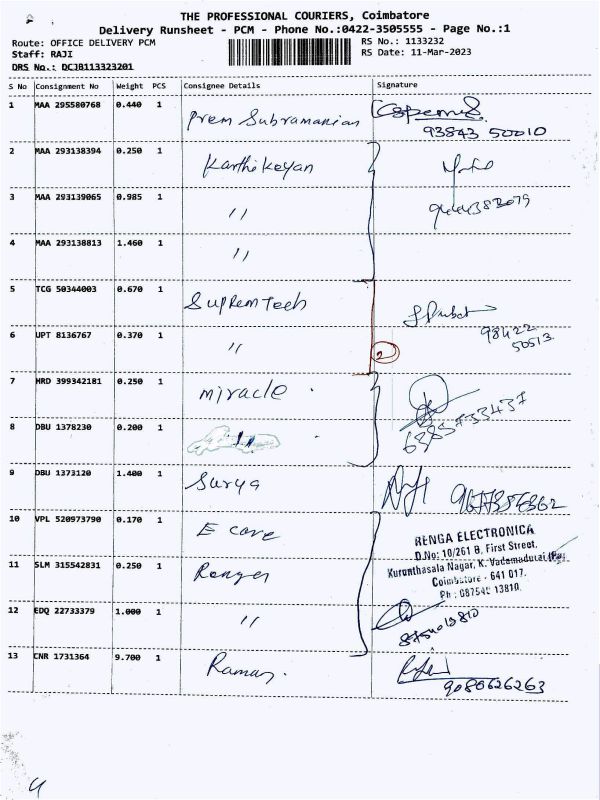 THE PROFESSIONAL COURIERS, Coimbatore
Delivery Runsheet - PCM - Phone No.:0422-3505555 - Page No.:1
Route: OFFICE DELIVERY PCM
Staff: RAJI
DRS No.: DCJB113323201
RS No.: 1133232
RS Date: 11-Mar-2023
S No Consignment No Weight PCS Consignee Details Signature
1 MAA 295580768 0.440 1 Prem Subramanian
93843 50010
2 MAA 293138394 0.250 1 Karthikeyan
3 MAA 293139065 0.985 1 11
4 MAA 293138813 1.460 1 11
5 TCG 50344003 0.670 1 Suprem Tech
98422
50513
6 UPT 8136767 0.370 1 11
2
7 HRD 399342181 0.250 1 miracle
8 DBU 1378230 0.200 1 11
9 DBU 1373120 1.400 1 Surya
10 VPL 520973790 0.170 1 E care
RENGA ELECTRONICA
D.No: 10/261 B, First Street,
Kurunthasala Nagar, K. Vadamadurai
Coimbatore - 641 017.
Ph : 087545 13810
11 SLM 315542831 0.250 1
12 EDQ 22733379 1.000 1 11
13 CNR 1731364 9.700 1 Raman.
9080626263